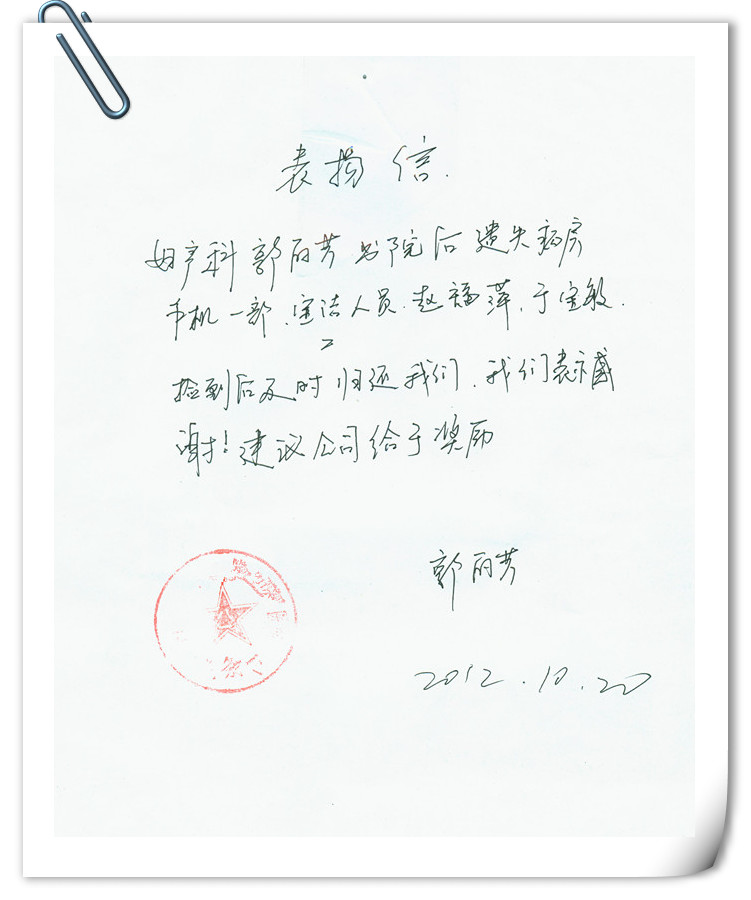 表扬信.
妇产科郭丽芳出院后遗失病房
手机一部.宝洁人员.赵福萍,于宝敏.
捡到后及时归还我们.我们表示感
谢!建议公司给于奖励
郭丽芳
2012.10.20